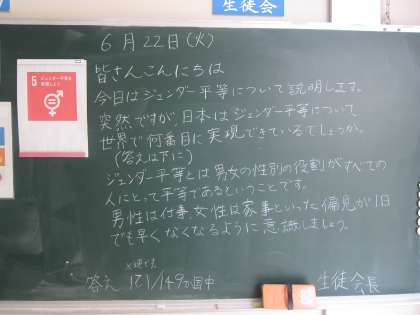 生徒会
6月22日(火)
5 ジェンダー平等を
実現しよう
皆さんこんにちは
今日はジェンダー平等について説明します。
突然ですが、日本はジェンダー平等について
世界で何番目に実現できているでしょうか。
(答えは下に)
ジェンダー平等とは男女の性別の役割がすべての
人にとって平等であるということです。
男性は仕事、女性は家事といった偏見が1日
でも早くなくなるように意識しましょう。
答え 121/149か国中
生徒会長